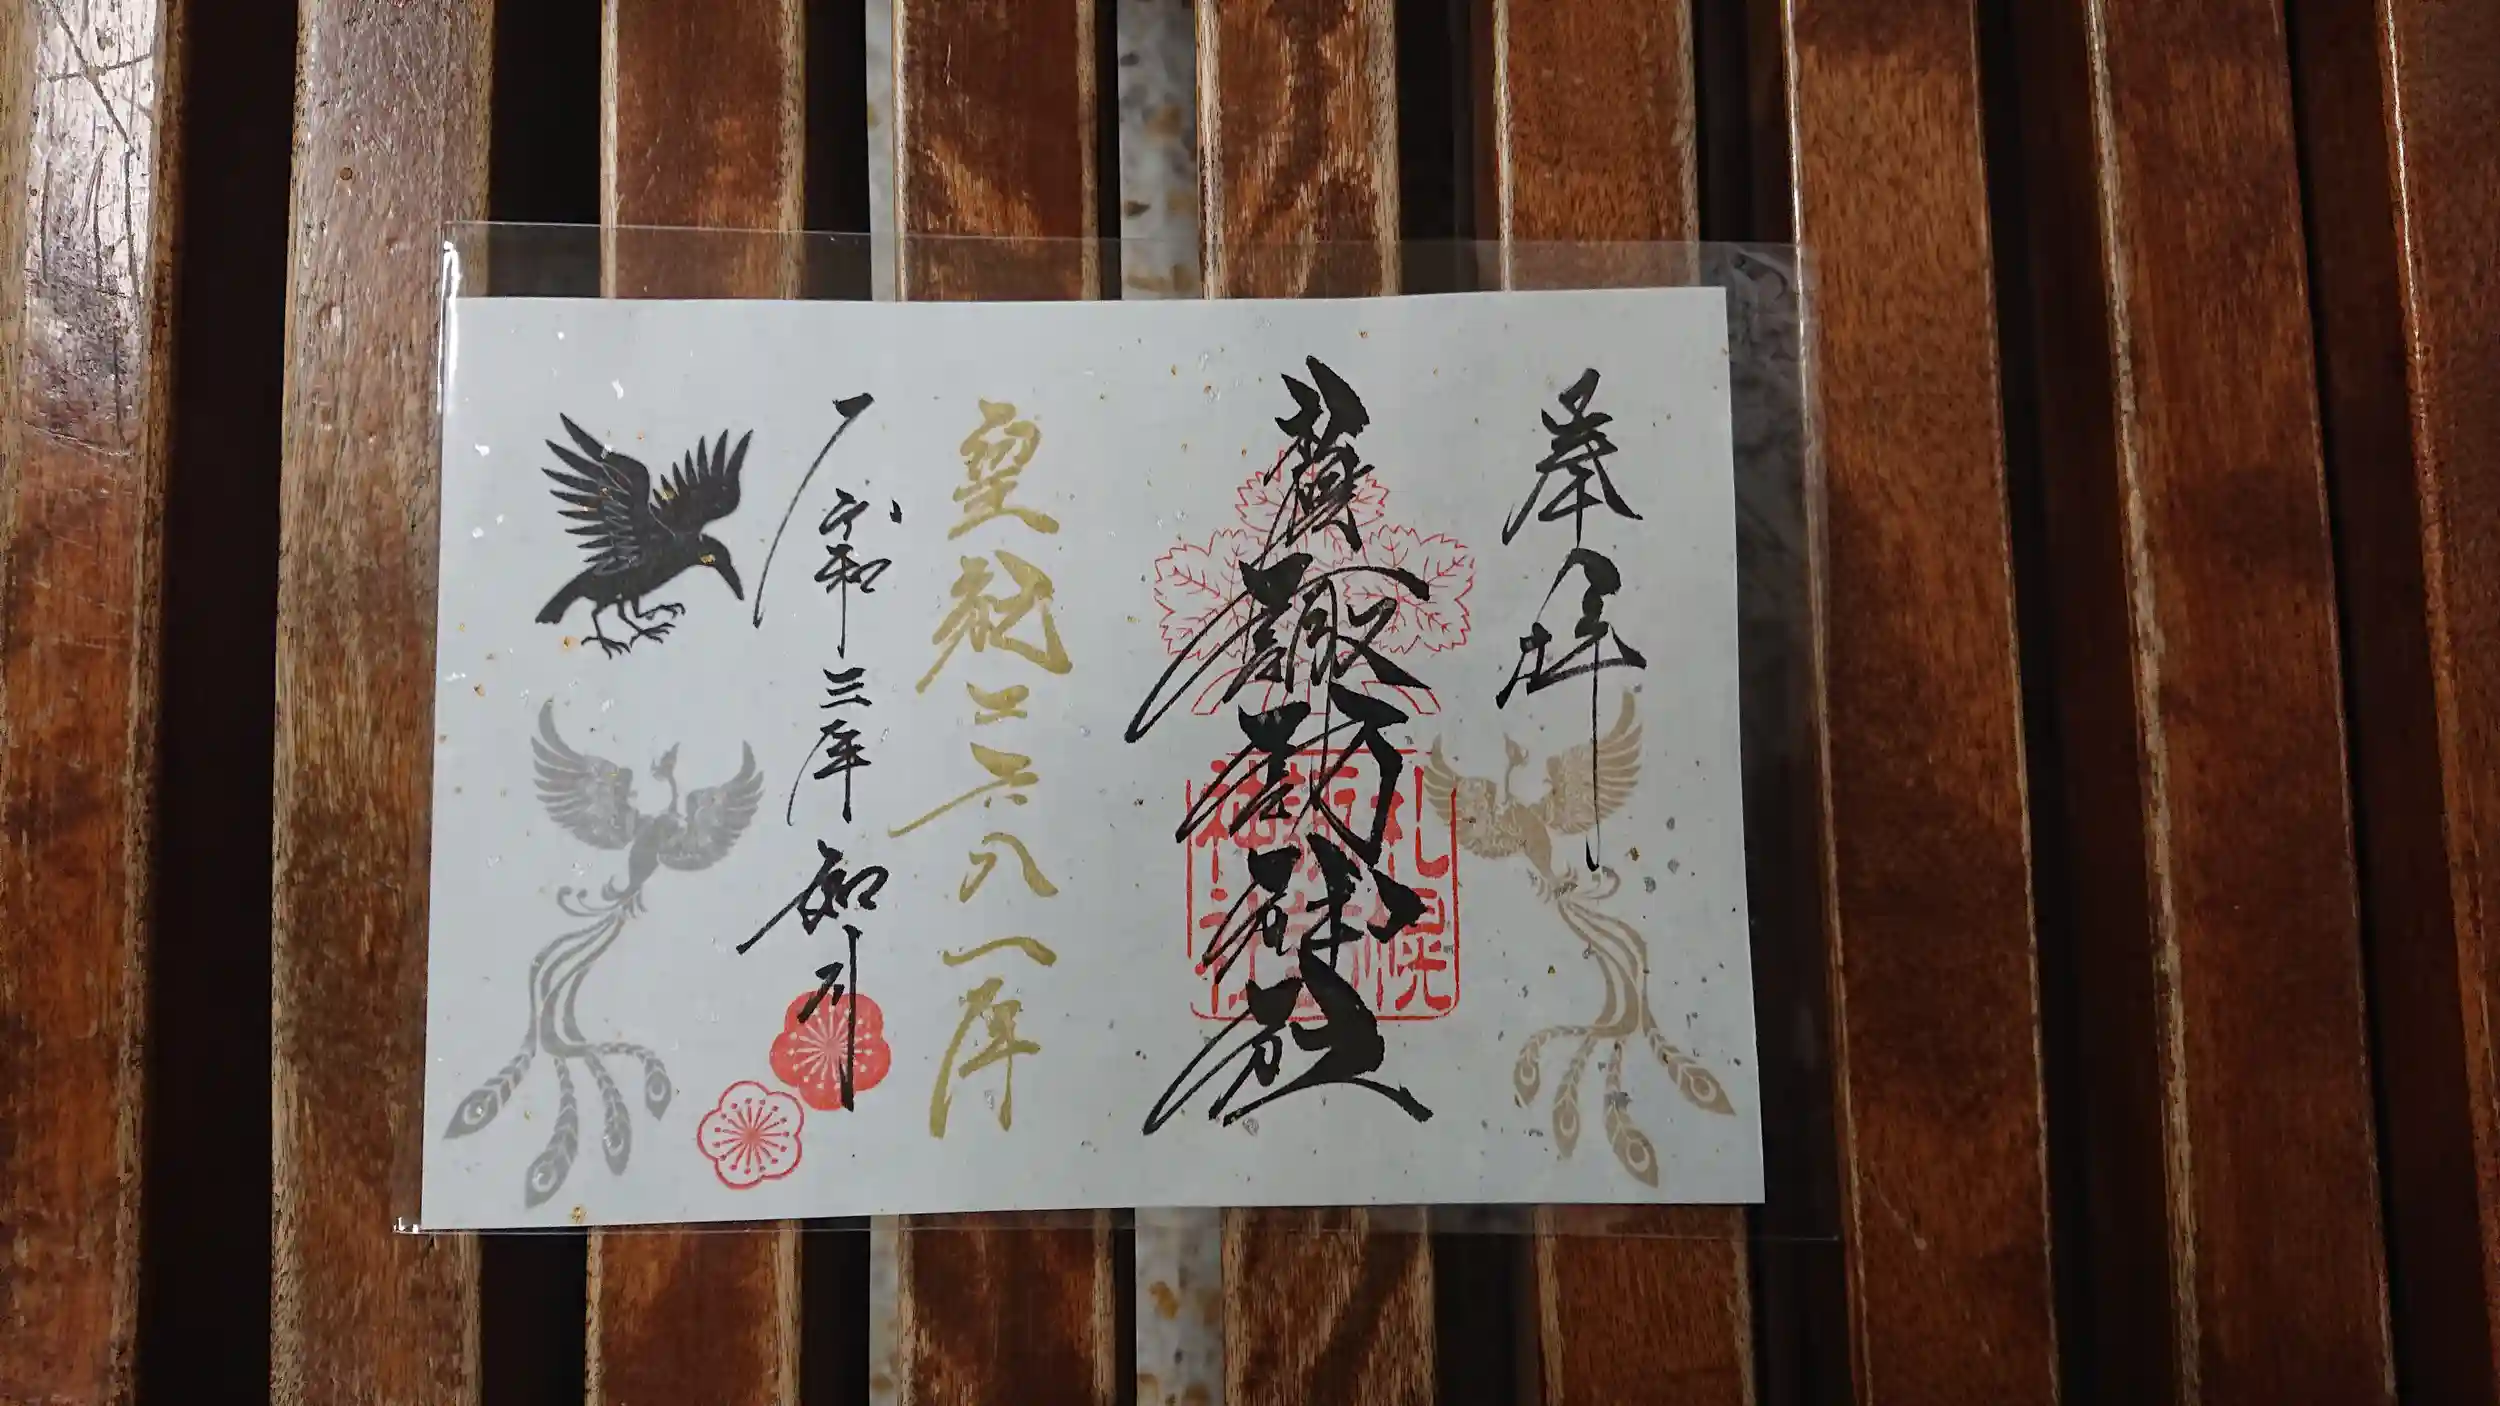 奉拝
諏訪神社
札幌
諏訪
神社
皇紀二六八一年
令和三年 如月